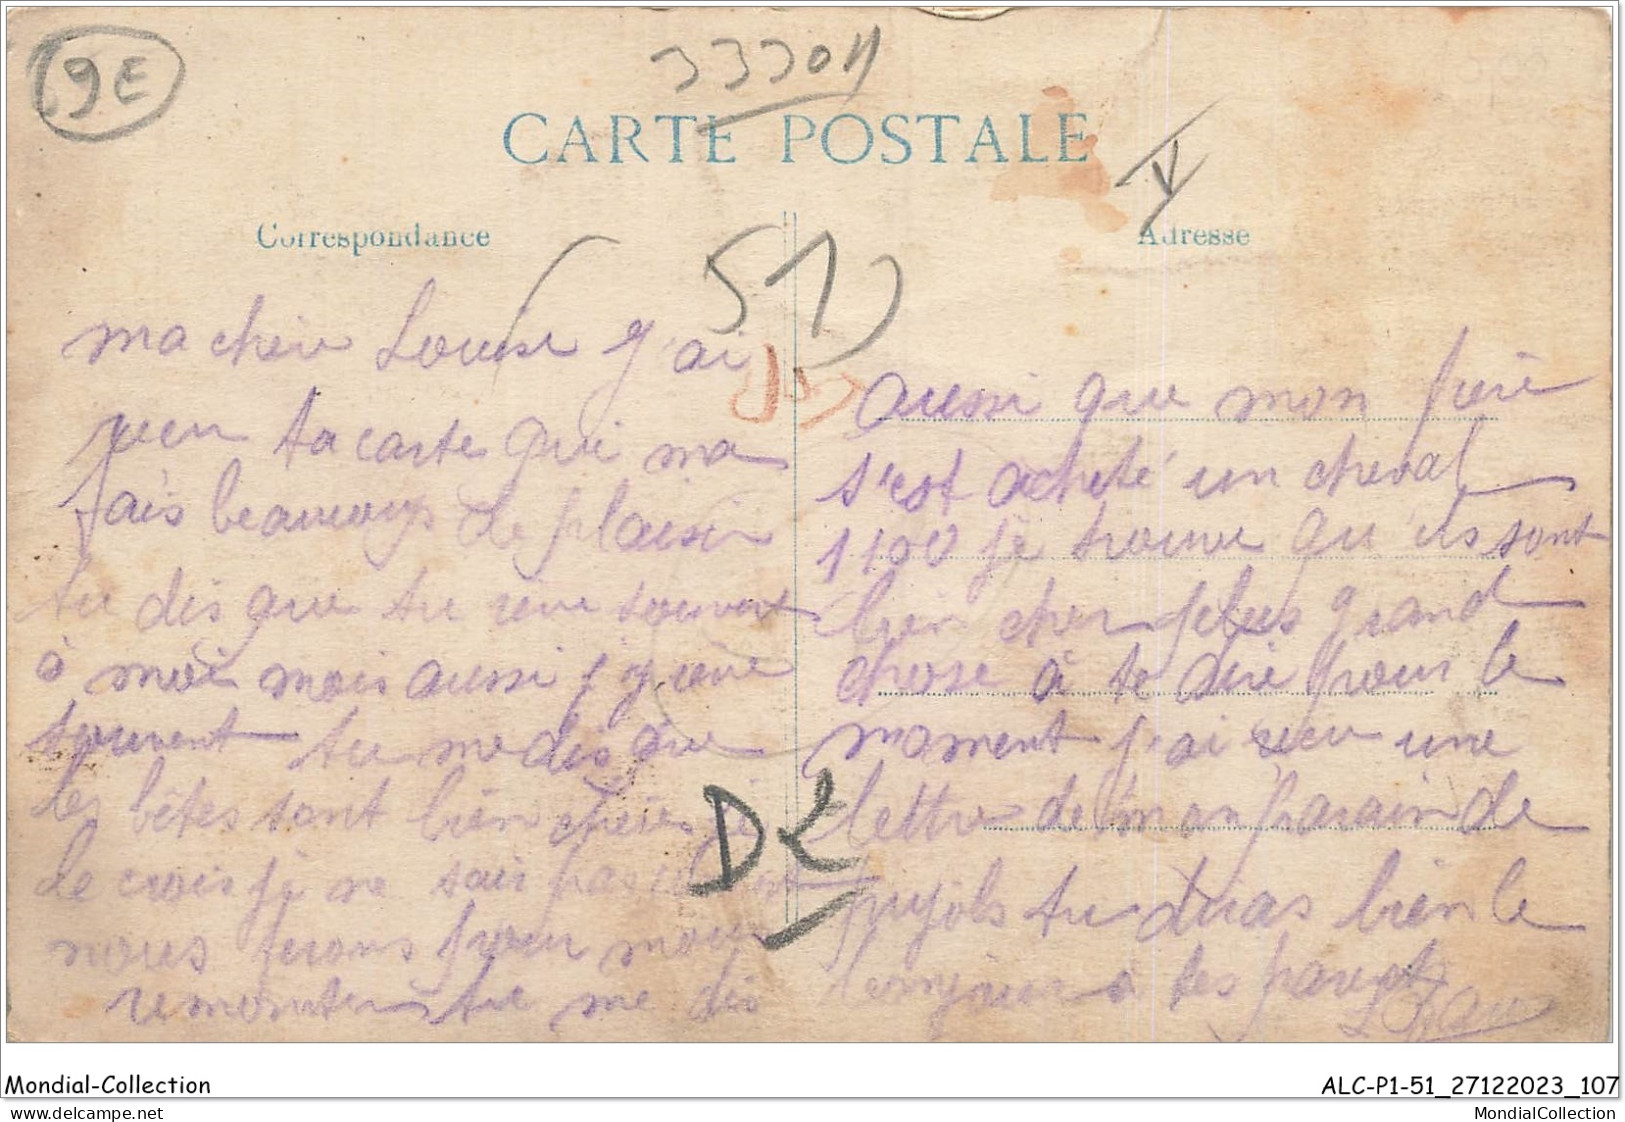 9E
CARTE POSTALE
Correspondance
Adresse
51
ma cheir Louise j'ai
recu ta carte qui ma
fais beaucoups de plaisir
tu dis que tu rève souvent
à moi mois aussi j'y rève
souvent tu me dis que
les bêtes sont bien chères je
le crois je ne sais pas
nous ferons pour nous
remonter tu me dis
aussi que mon frère
s'est acheté un cheval
1100 je trouve qu'ils sont
bien cher plus grand
chose à te dire pour le
moment j'ai recu une
lettre de mon parain de
pujols tu diras bien le
bonjour à tes parents
DL
Mondial-Collection
ALC-P1-51_27122023_107
delcampe.net
MondialCollection